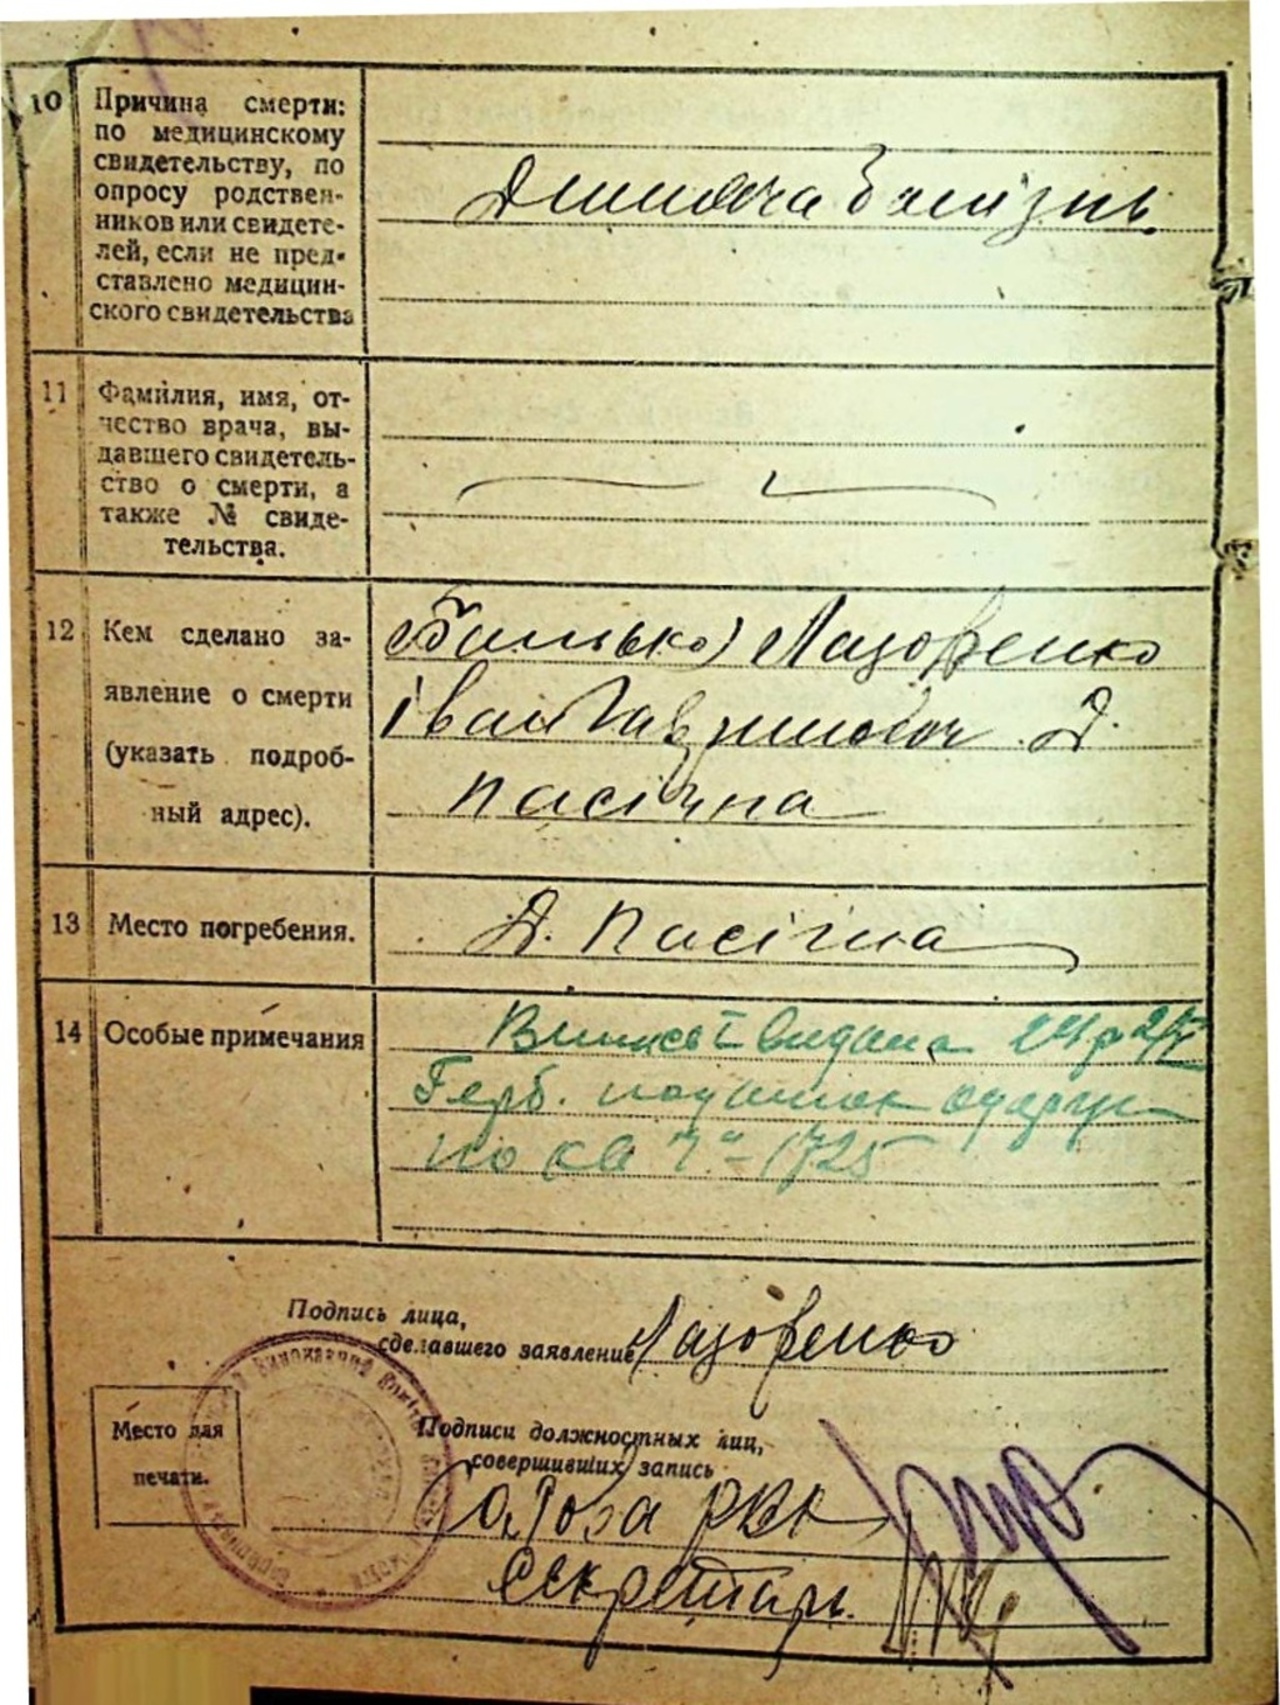 10 Причина смерти:
по медицинскому
свидетельству, по
опросу родствен-
ников или свидете-
лей, если не пред-
ставлено медицин-
ского свидетельства
Дитяча болізнь
11 Фамилия, имя, от-
чество врача, вы-
давшего свидетель-
ство о смерти, а
также № свиде-
тельства.
12 Кем сделано за-
явление о смерти
(указать подроб-
ный адрес).
(Батько) Лазоренко
Іван Гаврилович Д.
Пасічна
13 Место погребения.
Д. Пасічна
14 Особые примечания
видана
Герб.
по кв
Подпись лица,
сделавшего заявление Лазоренко
Место для
печати.
Подписи должностных лиц,
совершивших запись
Голова РВК
Секретарь